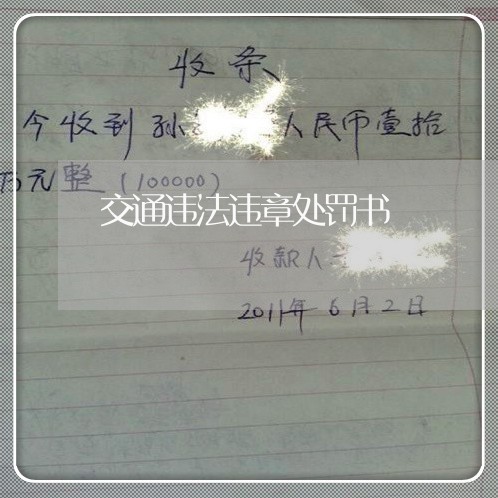 收条
今收到孙人民币壹拾
万元整（100000）
交通违法违章处罚书
收款人
2011年6月2日